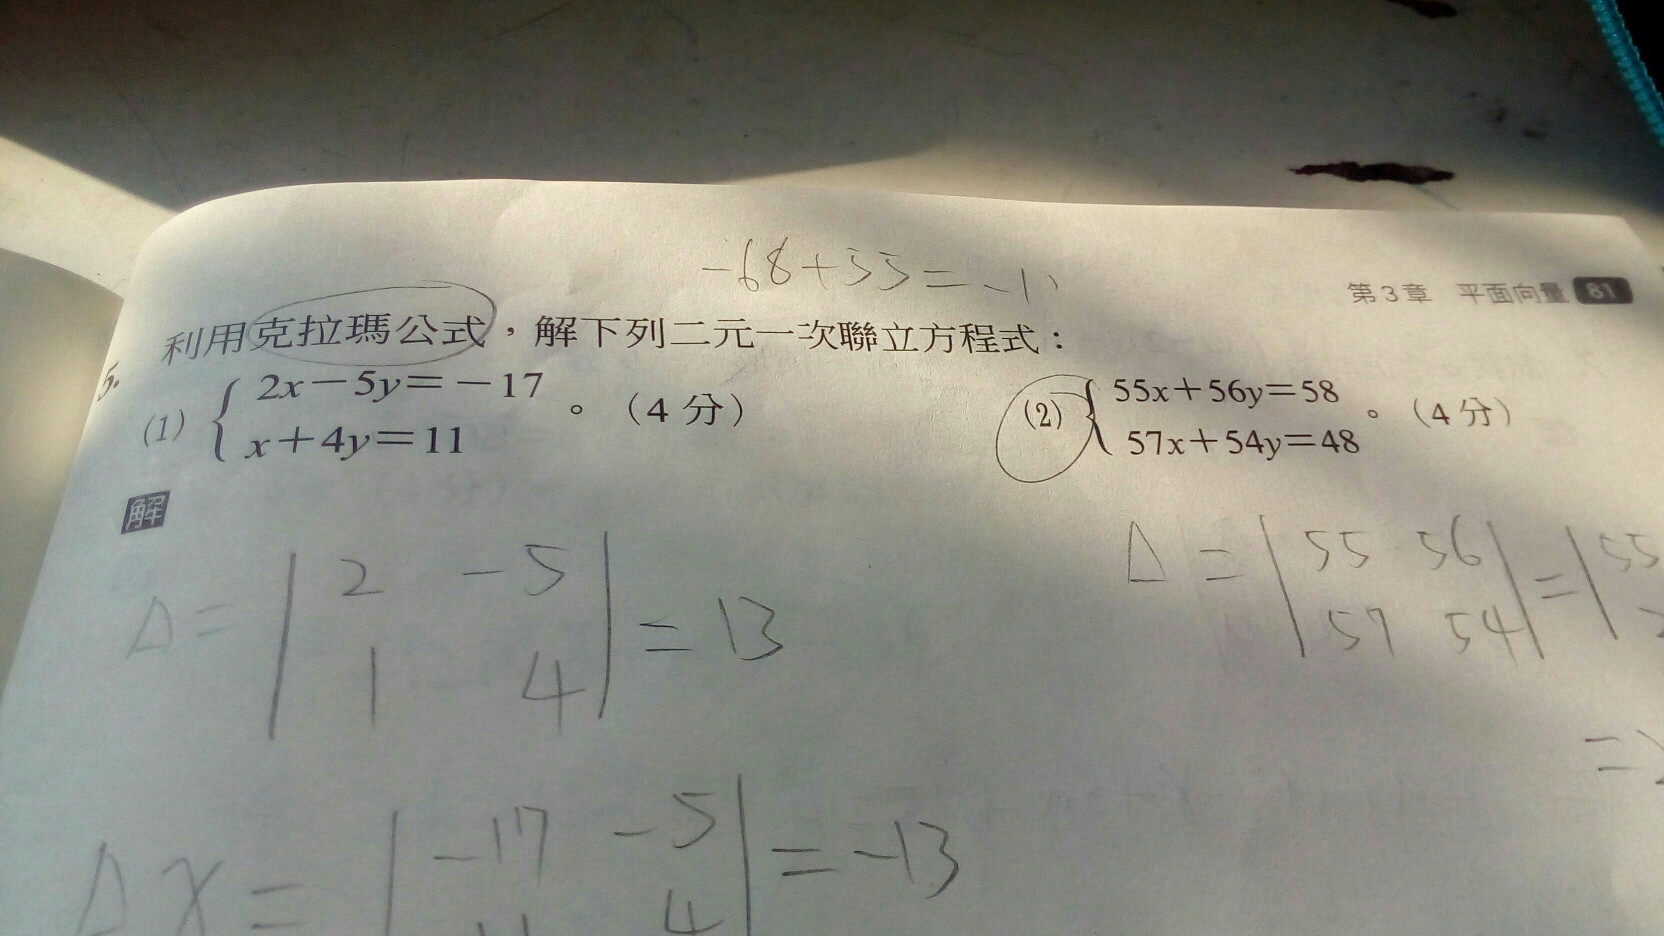 -68+55=-1
第3章 平面向量 81
5. 利用克拉瑪公式，解下列二元一次聯立方程式：
(1) { 2x－5y＝－17
x＋4y＝11 。（4 分）
(2) { 55x＋56y＝58
57x＋54y＝48 。（4 分）
解
Δ = | 2 -5
1 4 | = 13
Δ = | 55 56
57 54 | = | 55
=
Δx = | -17 -5
4 | = -13